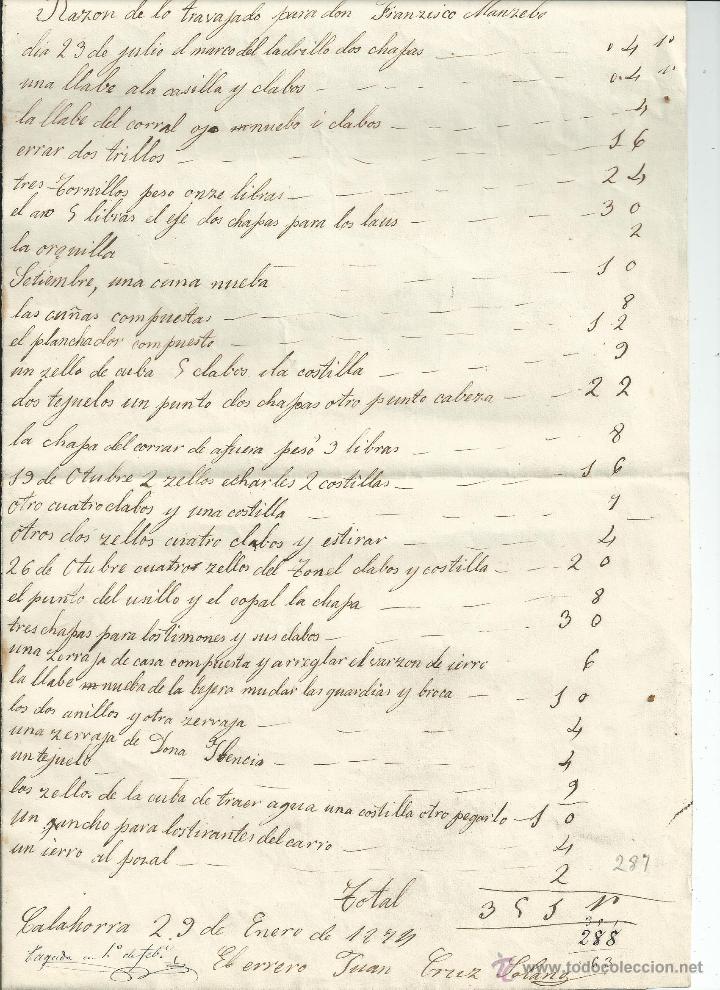 Razon de lo travajado para don Franzisco Manzebo
dia 23 de julio el marco del ladrillo dos chapas 4 rs
una llabe ala casilla y clabos 4 rs
la llabe del corral ojo nuebo i clabos 4
errar dos trillos 16
tres tornillos peso onze libras 24
el aro 5 libras el eje dos chapas para los 30
la orquilla 2
Setiembre, una cuna nueba 10
las cuñas compuestas 8
el planchador compuesto 12
un zello de cuba 5 clabos i la costilla 9
dos tejuelos un punto dos chapas otro punto cabeza 22
la chapa del corrar de afuera pesó 3 libras 8
19 de Otubre 2 zellos echarles 2 costillas 16
otro cuatro clabos y una costilla 7
otros dos zellos cuatro clabos y estirar 4
26 de Otubre cuatro zellos del tonel clabos y costilla 20
el punto del usillo y el copal la chapa 8
tres chapas para los timones y sus clabos 30
una zerraja de casa compuesta y arreglar el varzon de ierro 6
la llabe nueba de la bejera mudar las guardias y broca 10
los dos anillos y otra zerraja 4
una zerraja de Dona 4
un tejuelo 9
los zellos de la cuba de traer agua una costilla otro pegarlo 10
un gancho para los tirantes del carro 4
un ierro al pozal 2
287
Total 351 rs
288
63
Calahorra 29 de Enero de 1874
Pagada en 1º de febº
El errero Juan Cruz Solano
todocoleccion.net